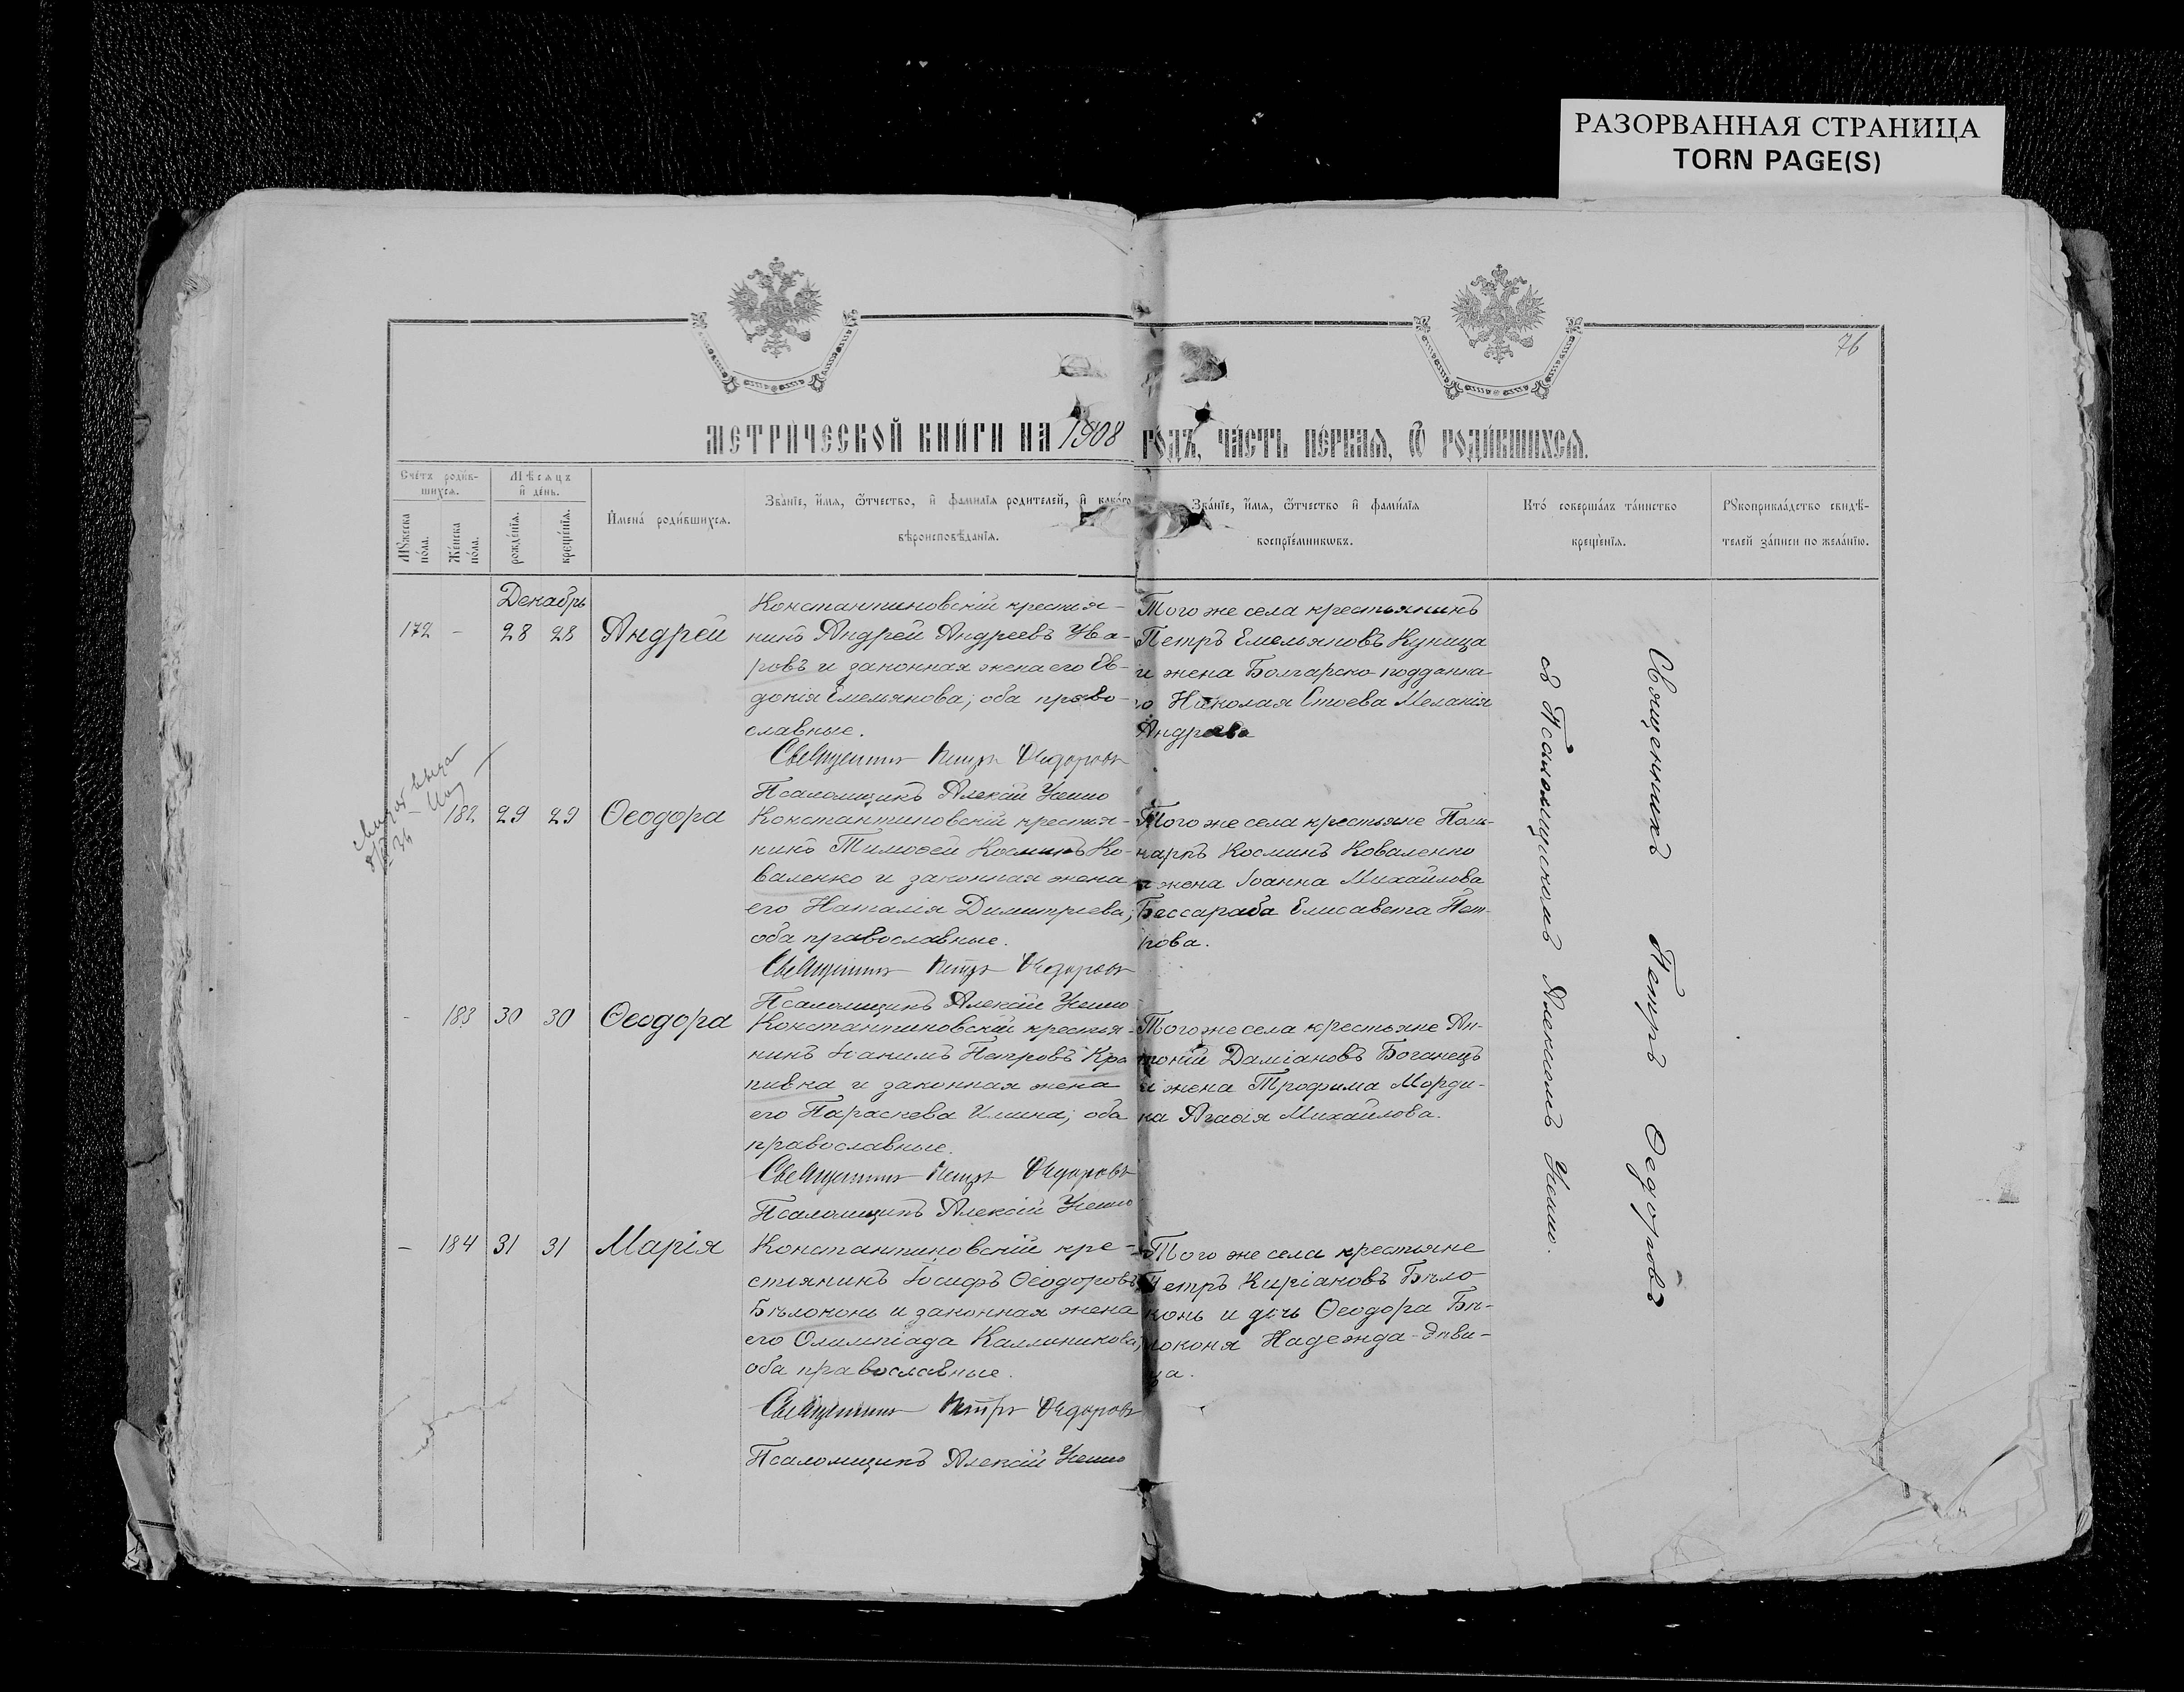 РАЗОРВАННАЯ СТРАНИЦА
TORN PAGE(S)
76
МЕТРИЧЕСКОЙ КНИГИ НА 1908
ГОДЪ, ЧАСТЬ ПЕРВАЯ, Ѿ РОДИВШИХСЯ.
Счетъ родив-
шихся.
Мѣсяцъ
и день.
Мꙋжеска
пола.
Женска
пола.
рожденія.
крещенія.
Имена родившихся.
Званіе, имя, ѿтчество, и фамилія родителей, и какого
вѣроисповѣданія.
Званіе, имя, ѿтчество и фамилія
воспріемникѡвъ.
Кто совершалъ таинство
крещенія.
Рꙋкоприкладство свидѣ-
телей записи по желанію.
Декабрь
172 - 28 28 Андрей
Константиновскій крестья-
нинъ Андрей Андреевъ Ува-
ровъ и законная жена его Ев-
докія Емельянова; оба право-
славные.
Священникъ Петръ Ѳедоровъ
Псаломщикъ Алексій
Того же села крестьянинъ
Петръ Емельяновъ Куница
и жена Болгарско-подданна-
го Николая Стоева Меланія
Андреева
- 182 29 29 Ѳеодора
Константиновскій крестья-
нинъ Тимоѳей Косминъ Ко-
валенко и законная жена
его Наталія Димитріева;
оба православные.
Священникъ Петръ Ѳедоровъ
Псаломщикъ Алексій
Того же села крестьяне Поли-
карпъ Косминъ Коваленко
и жена Іоанна Михайлова
Бессараба Елисавета Пет-
рова.
- 183 30 30 Ѳеодора
Константиновскій крестья-
нинъ Іоакимъ Петровъ Кра
пивка и законная жена
его Параскева Ильина; оба
православные.
Священникъ Петръ Ѳедоровъ
Псаломщикъ Алексій
Того же села крестьяне Ан-
тоній Даміановъ Боганецъ
и жена Трофима Морди-
на Агаѳія Михайлова.
- 184 31 31 Марія
Константиновскій кре-
стьянинъ Іосифъ Ѳеодоровъ
Бѣлоконь и законная жена
его Олимпіада Каллиникова;
оба православные.
Священникъ Петръ Ѳедоровъ
Псаломщикъ Алексій
Того же села крестьяне
Петръ Киріановъ Бѣло
конь и дочь Ѳеодора Бѣ-
локоня Надежда-дѣви-
ца.
Священникъ Петръ Ѳедоровъ
съ Псаломщикомъ Алексіемъ